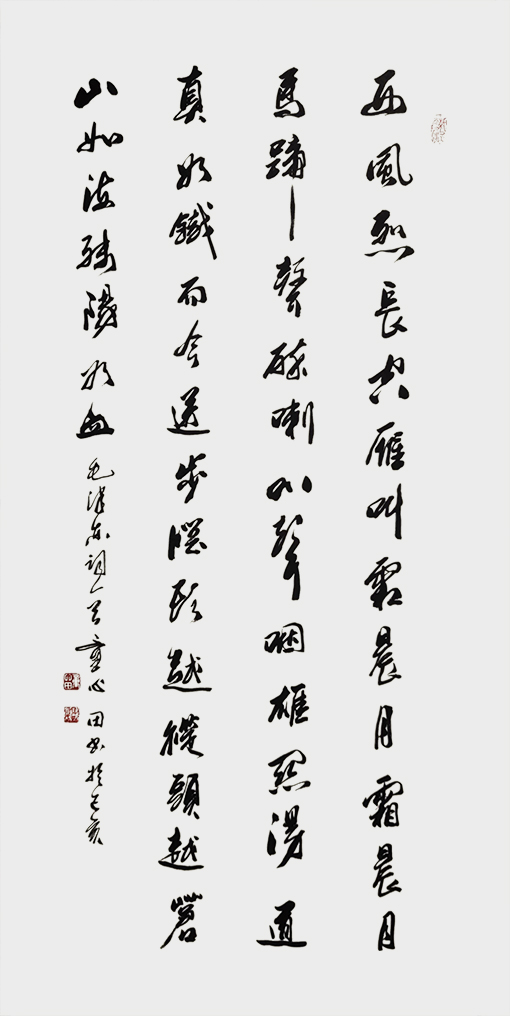 西風烈長空雁叫霜晨月霜晨月
馬蹄聲碎喇叭聲咽雄關漫道
真如鐵而今邁步從頭越從頭越蒼
山如海殘陽如血毛澤东詞一首童心田书於己亥